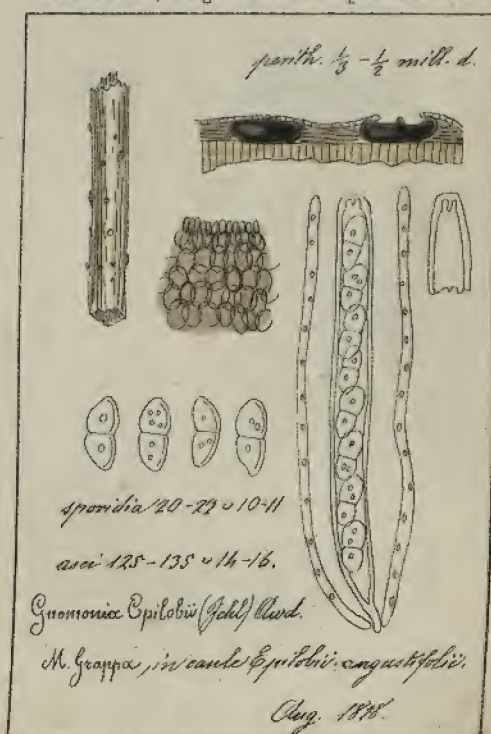 perith. 1/3 - 1/2 mill. d.
sporidia 20-22 ≈ 10-11
asci 125-135 ≈ 14-16.
Gnomonia Epilobii (Fckl) Awd.
M. Grappa, in caule Epilobii angustifolii.
Aug. 1898.